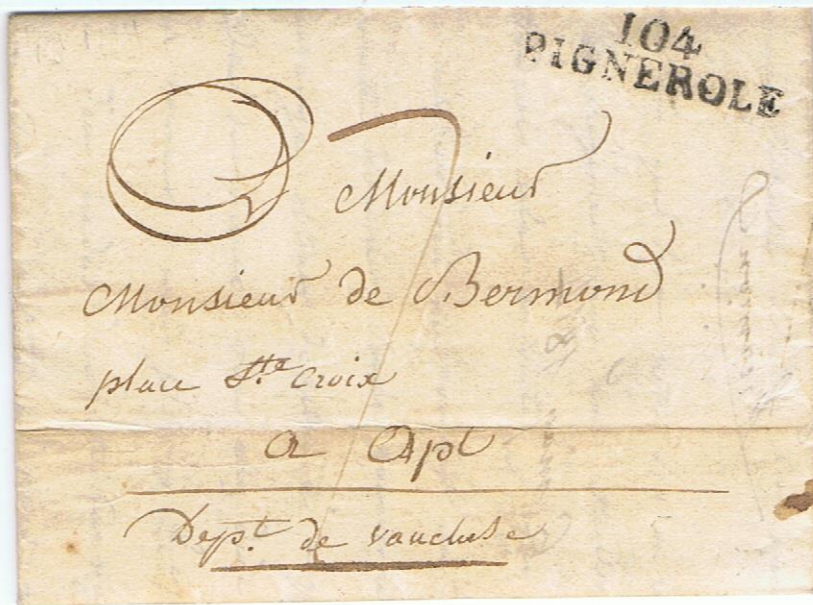 104
PIGNEROLE
Monsieur
Monsieur de Bermond
place Ste. Croix
a Apt
Dept. de vaucluse